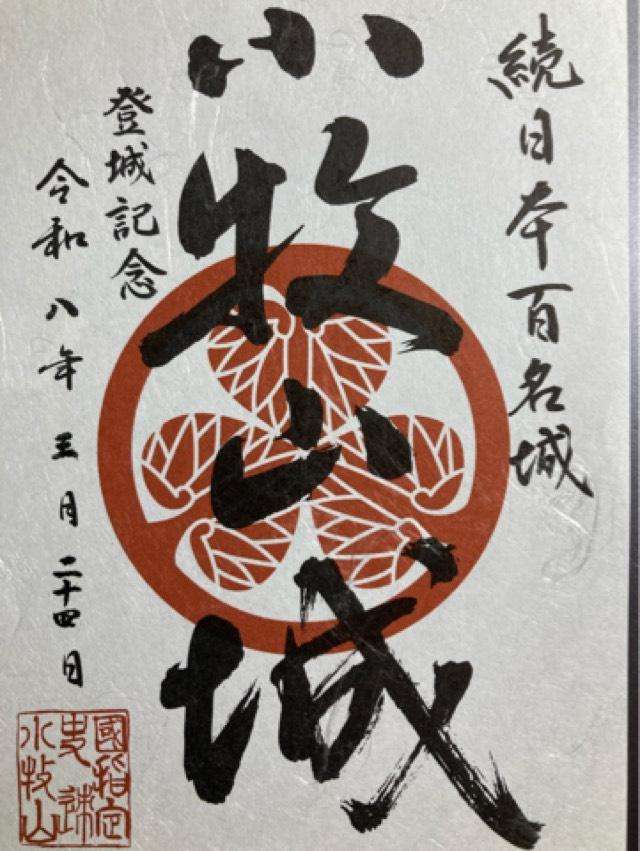 続日本百名城
小牧山城
登城記念
令和八年三月二十四日
國指定
史跡
小牧山